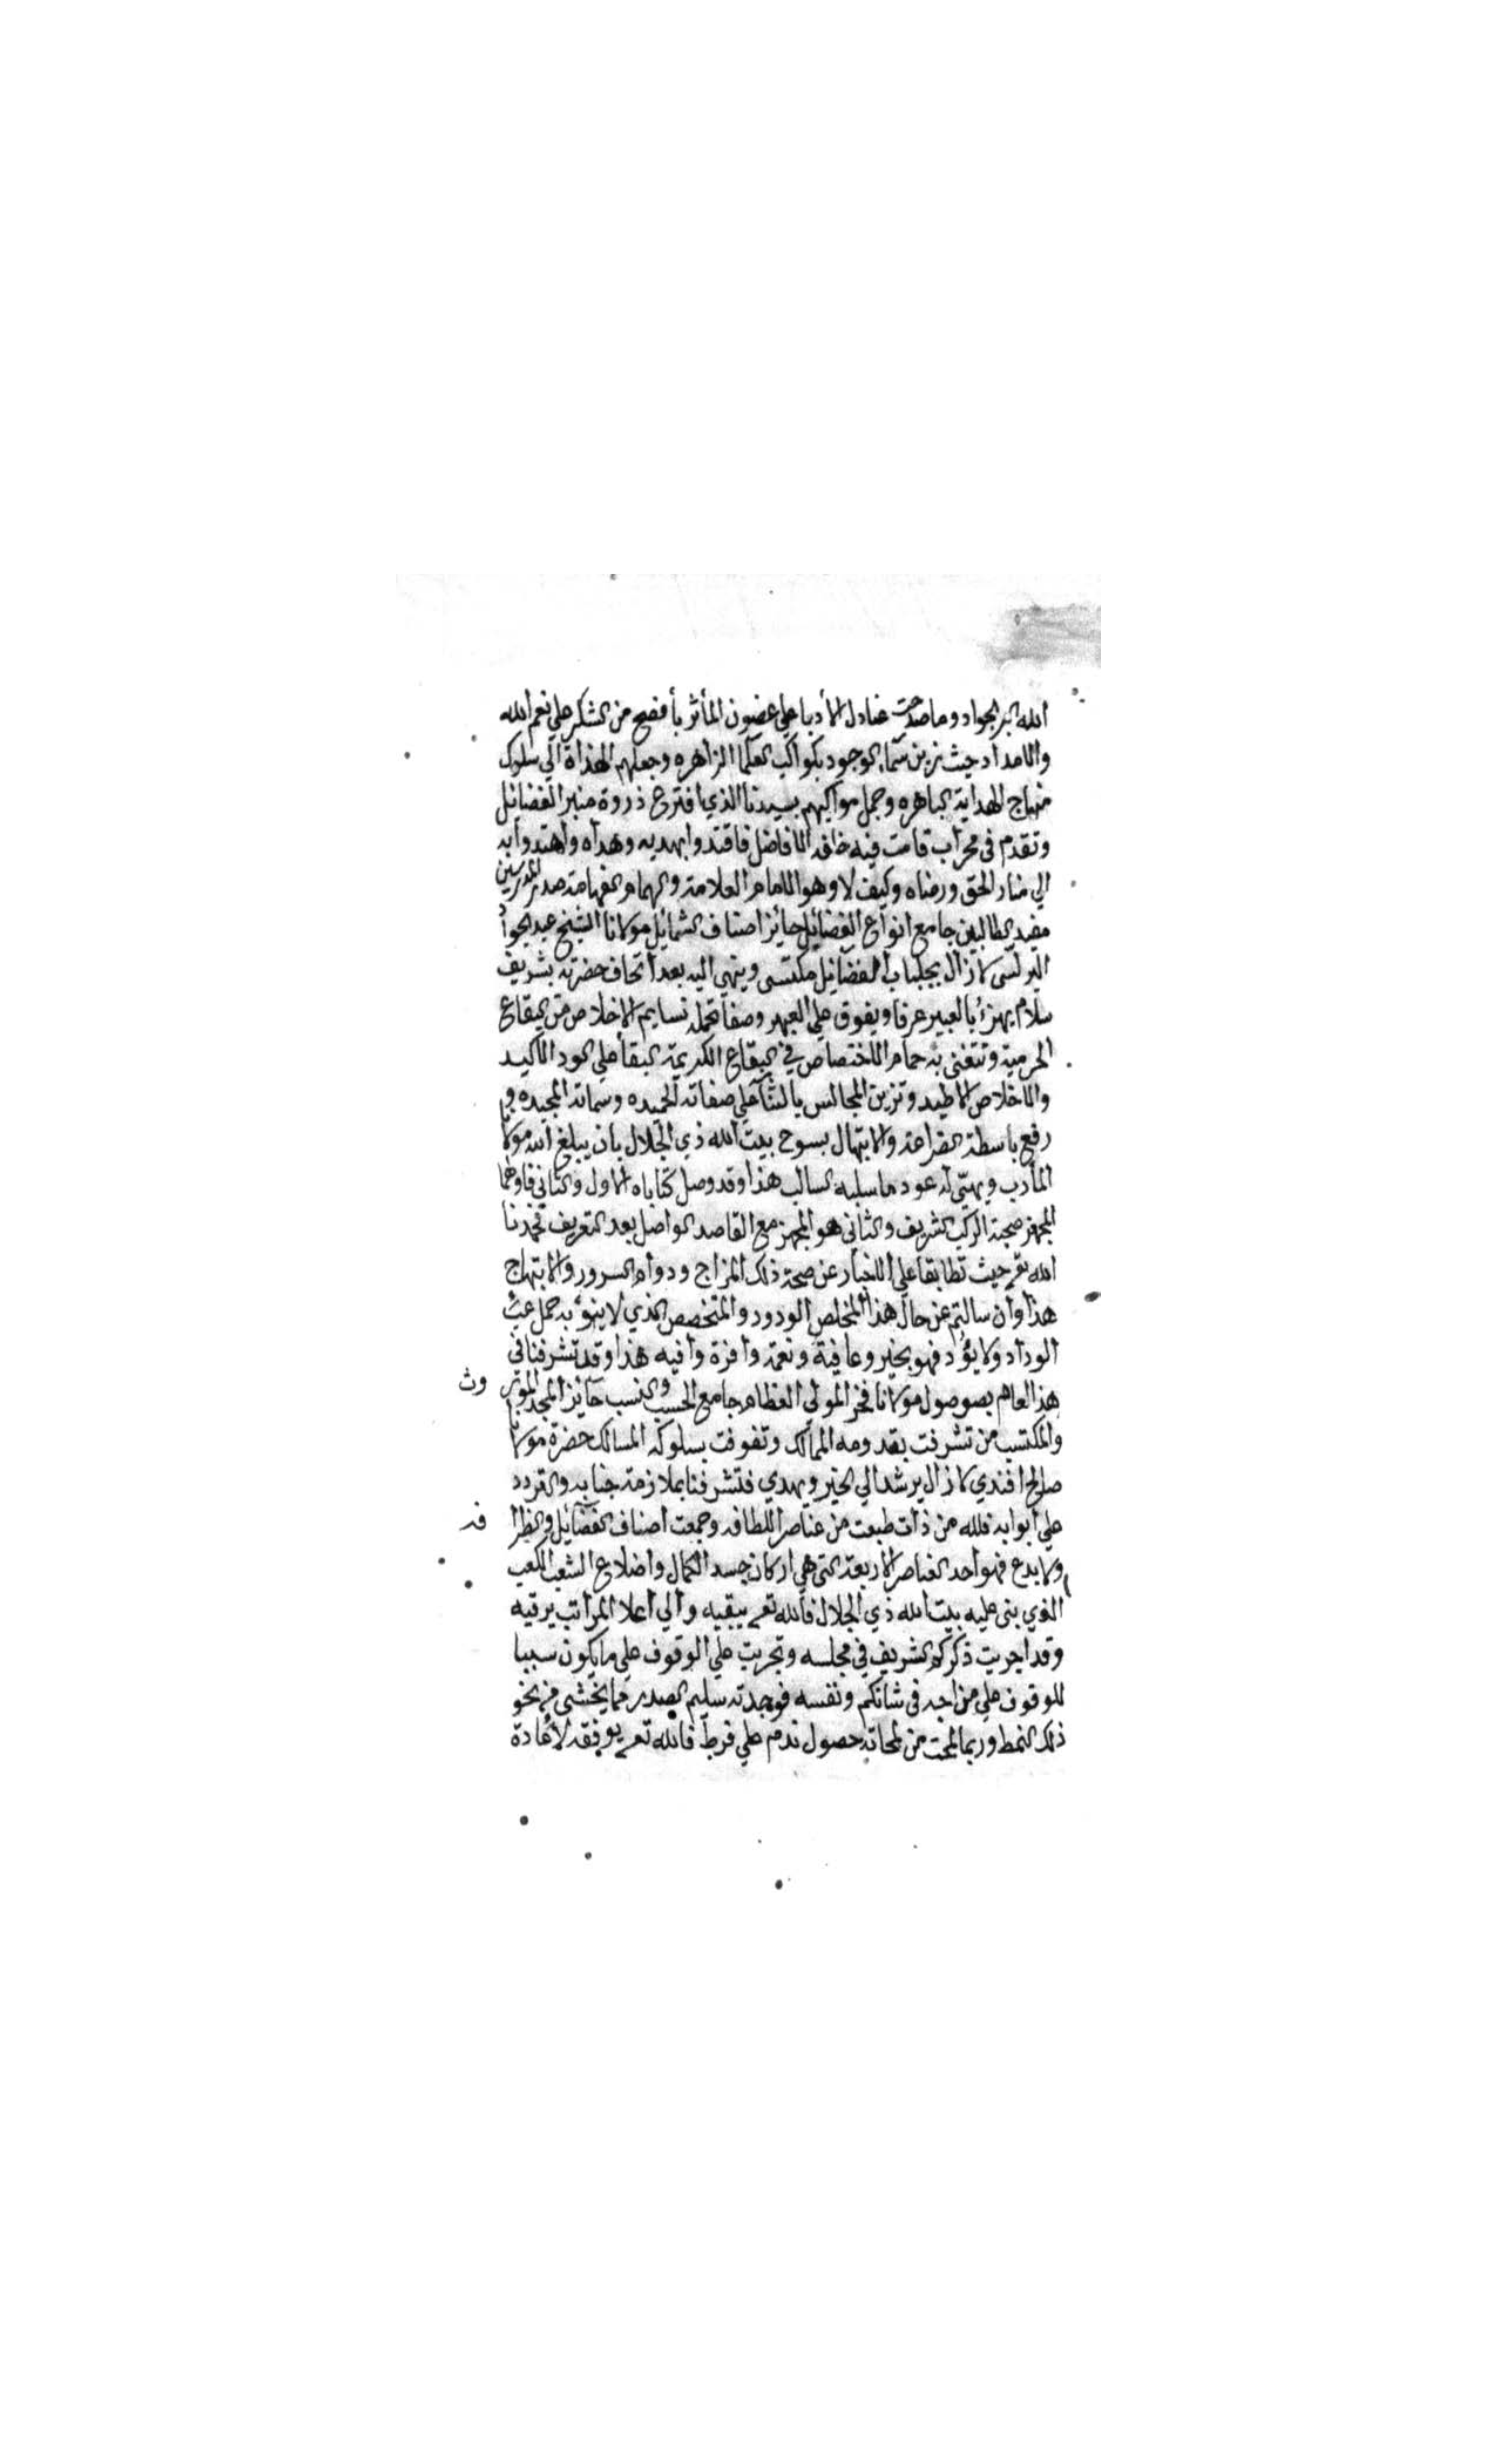 الله البر الجواد وما صدحت عنادل الأدبا علي غصون المأثر بأفصح من الشكر علي نعم الله
والامداد حيث زين سماء الوجود بكواكب العلما الزاهره وجعلهم الهداة الي سلوك
منهاج الهداية الباهره وجمل مواكبهم بسيدنا الذي افترع ذروة منبر الفضائل
وتقدم في محراب قامت فيه الافاضل فاقتدوا بهديه وهداه واهتدوا به
الي منار الحق ورضاه وكيف لا وهو الامام العلامة والهمام الفهامة صدر المدرسين
مفيد الطالبين جامع انواع الفضائل حائز اصناف الشمائل مولانا الشيخ عبد الجواد
البرلسي لازال بجلباب الفضائل مكتسي وينهي اليه بعد اتحاف حضرته بشريف
سلام يهزء بالعبير عرفا ويفوق علي العبهر وصفا تحمله نسايم الاخلاص من البقاع
الحرمية وتتغني به حمام الاختصاص في البقاع الكريمة البقا علي الود الاكيد
والاخلاص الاطيد وتزين المجالس بالثنا علي صفاته الحميده وسماته المجيده و
رفع باسطة الضراعة والابتهال بسوح بيت الله ذي الجلال بان يبلغ الله مولانا
المأدب ويهيي له عود ما سلبه السالب هذا وقد وصل كتاباه الاول والثاني فاولهما
المجهز صحبة الركب الشريف والثاني هو المجهز مع القاصد الواصل بعد التعريف فحمدنا
الله تعـ حيث تطابقا علي الاخبار عن صحة ذلك المزاج ودوام السرور والابتهاج
هذا وان سالتم عن حال هذا المخلص الودود والمتخصص الذي لا ينوء به حمل عبء
الوداد ولا يؤد فهو بخير وعافية ونعمة وافرة وافيه هذا وقد تشرفنا في
هذا العام بوصول مولانا فخر الموالي العظام جامع الحسب والنسب حائز المجد الموروث
والمكتسب من تشرفت بقدومه الممالك وتفوفت بسلوكه المسالك حضرة مولانا
صالح افندي لازال يرشد الي الخير ويهدي فتشرفنا بملازمة جنابه والتردد
علي ابوابه فلله من ذات طبعت من عناصر اللطافه وجمعت اصناف الفضائل والظرافه
ولا بدع فهو احد العناصر الاربعة التي هي اركان جسد الكمال واضلاع الشعب المكعب
الذي بني عليه بيت الله ذي الجلال فالله تعـ يبقيه والي اعلا المراتب يرقيه
وقد اجريت ذكركم الشريف في مجلسه وتجريت علي الوقوف علي ما يكون سببا
للوقوف علي مزاجه في شانكم ونفسه فوجدته سليم الصدر مما يخشي من نحو
ذلك النمط وربما لمحت من لمحاته حصول ندم علي فرط فالله تعـ يوفقه لاعادة